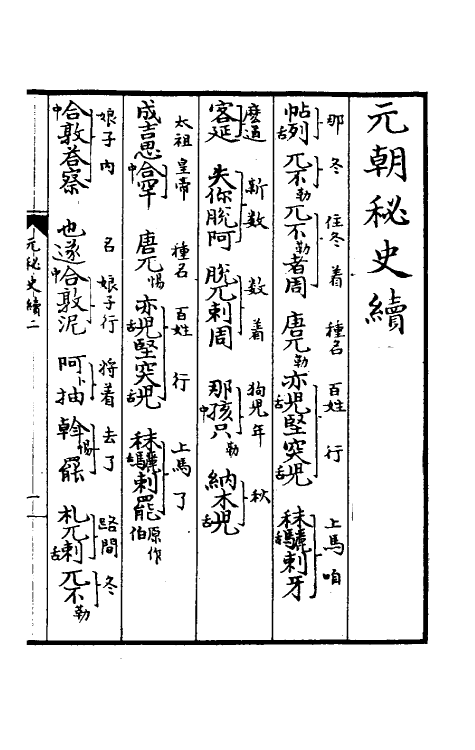 元朝秘史續
那 冬 住冬着 種名 百姓 行 上馬咱
帖舌列 兀不勒 兀不勒者周 唐兀勒 亦舌児堅突舌児 秣舌驎剌牙
麼道 新數 數着 狗児年 秋
客延 失你脫阿 脫兀剌周 那中孩只勒 納木舌児
太祖皇帝 種名 百姓 行 上馬了
成吉思中合罕 唐兀惕 亦舌児堅突舌児 秣舌驎剌罷原作伯
娘子内 名 娘子行 將着 去了 路間 冬
中合敦荅察 也遂中合敦泥 阿卜抽 斡惕罷 札兀舌剌 兀不勒
元秘史續二 一